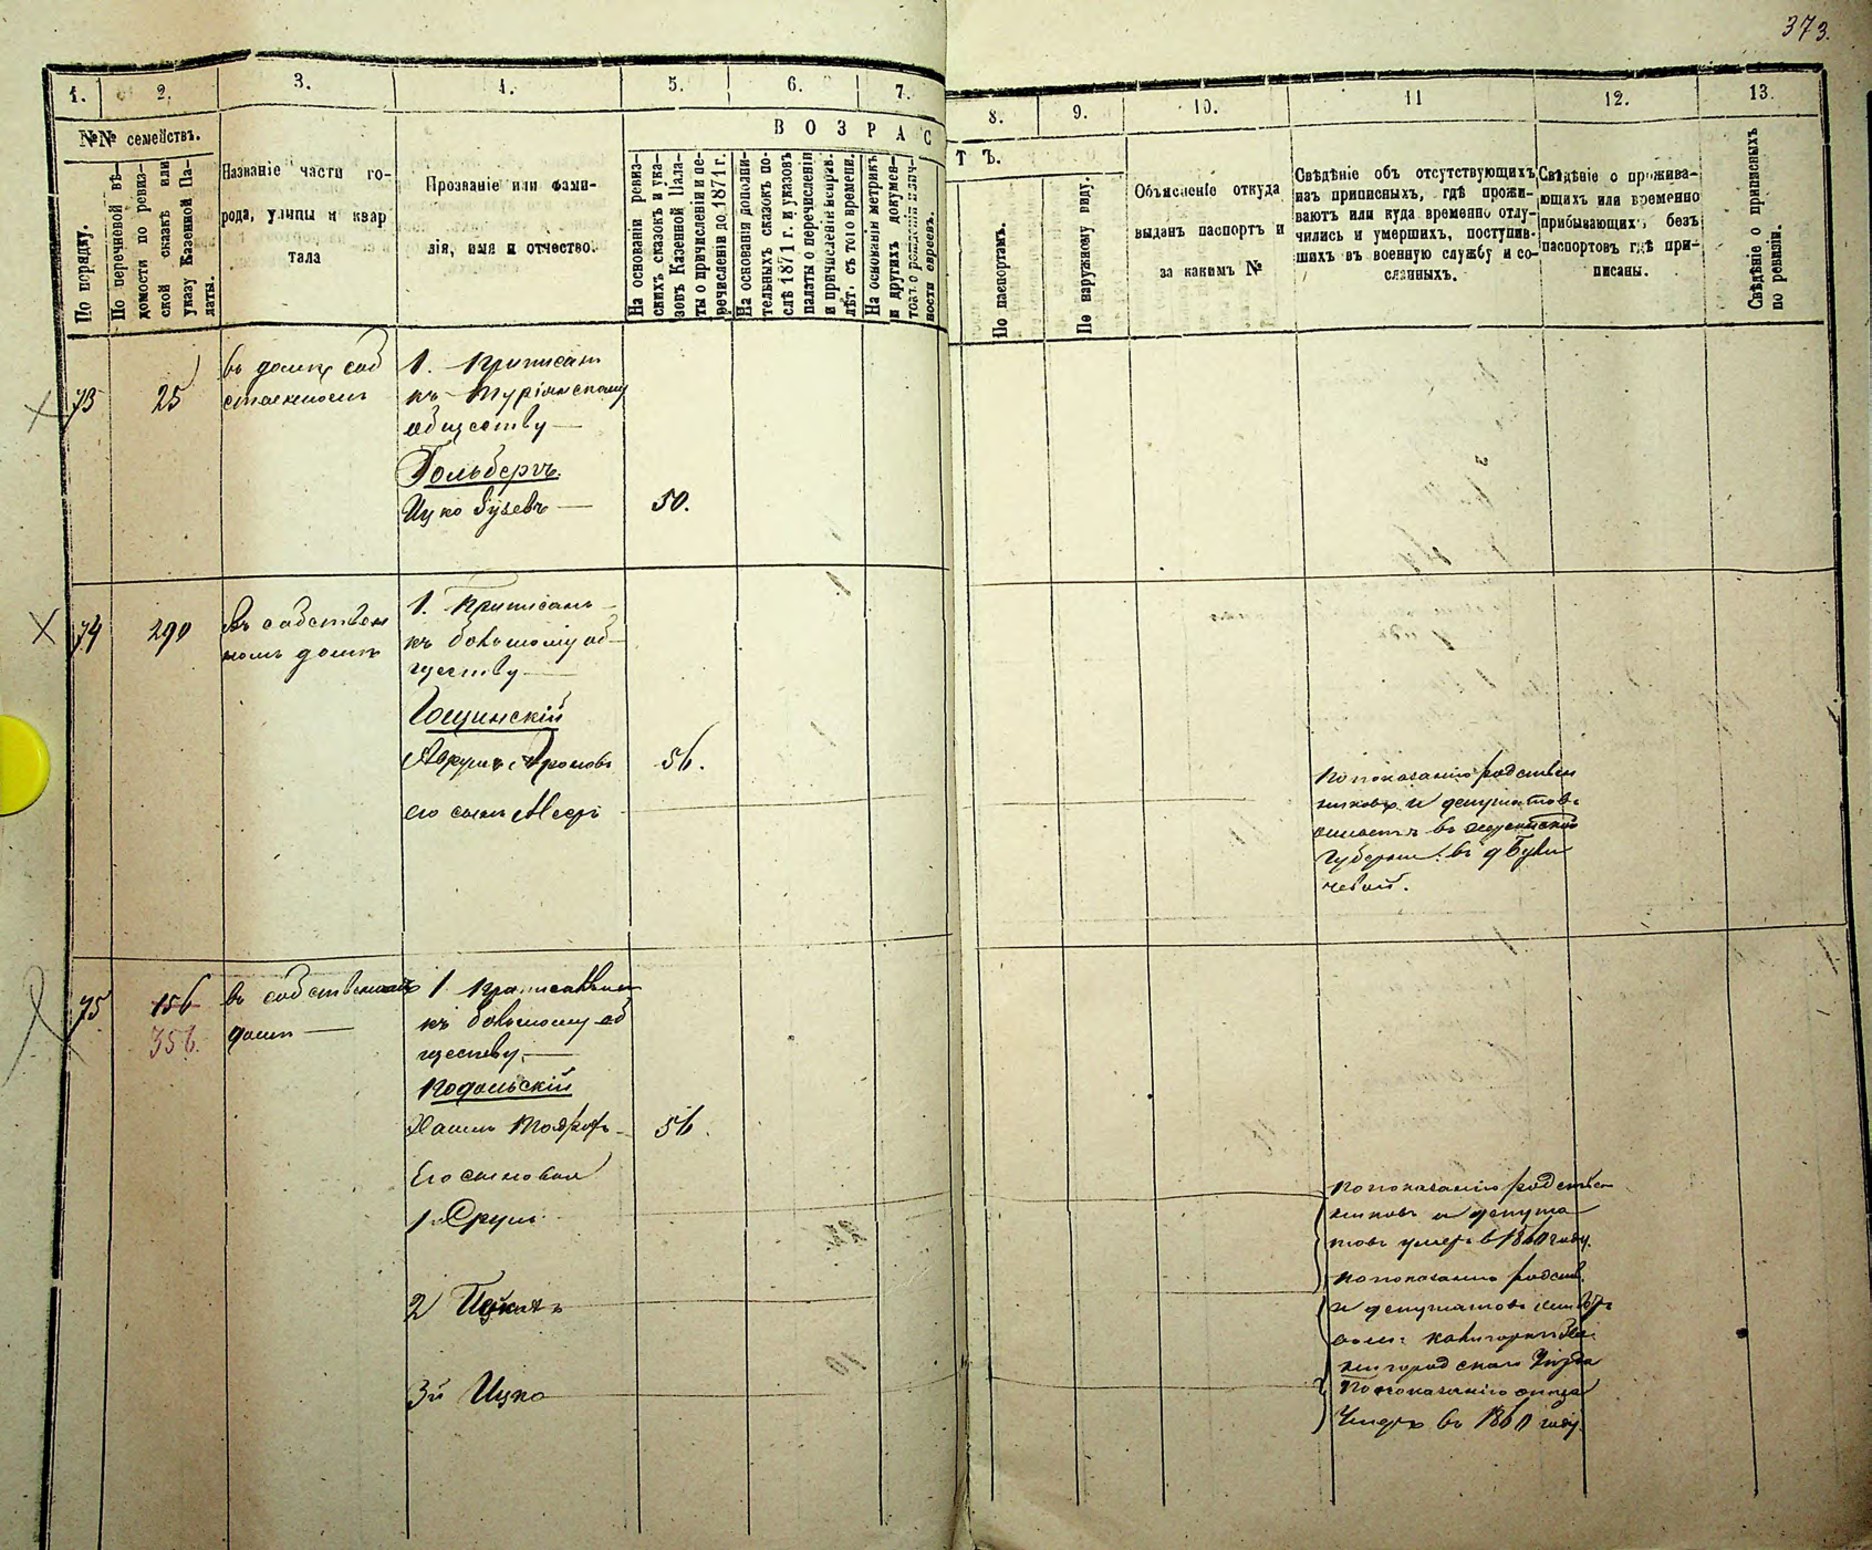 373.
1. 2. 3. 4. 5. 6. 7. 8. 9. 10. 11 12. 13.
№№ семействъ.
По порядку.
По перечневой вѣ-
домости по ревиз-
ской сказкѣ или
указу Казенной Па-
латы.
Названіе части го-
рода, улицы и квар
тала
Прозваніе или фами-
лія, имя и отчество.
ВОЗРАСТЪ.
На основаніи ревиз-
скихъ сказокъ и ука-
зовъ Казенной Пала-
ты о причисленіи и пе-
речисленіи до 1871 г.
На основаніи дополни-
тельныхъ сказокъ по-
слѣ 1871 г. и указовъ
палаты о перечисленіи
и причисленіи исправ.
лѣт. съ того времени.
На основаніи метрикъ
и другихъ докумен-
товъ о рожденіи и лич-
ности евреевъ.
По паспортамъ.
По наружному виду.
Объясненіе откуда
выданъ паспортъ и
за какимъ №
Свѣдѣніе объ отсутствующихъ
изъ приписныхъ, гдѣ прожи-
ваютъ или куда временно отлу-
чились и умершихъ, поступив-
шихъ въ военную службу и со-
сланныхъ.
Свѣдѣніе о прожива-
ющихъ или временно
прибывающихъ, безъ
паспортовъ гдѣ при-
писаны.
Свѣдѣніе о приписныхъ
по ревизіи.
73 25
въ домѣ соб
ственномъ
1. Приписан
къ Туріянскому
обществу —
Гольбергъ.
Ицко — 50.
74 290
Въ собствен
номъ домѣ
1. Приписанъ
къ большому об-
ществу —
Гощинскій
Аврумъ Ароновъ 56.
его сынъ Мееръ
По показанію родствен
никовъ и депутатовъ
въ
губерніи въ д
75 156
356.
въ собственномъ
домѣ —
1 Приписанъ
къ большому об
ществу, —
Подольскій
Хаимъ 56.
Его сыновья
1. Срулъ
2
3й Ицко
По показанію родствен
никовъ и депута
товъ умеръ в 1860 году.
По показанію родств.
и депутатовъ
Уѣзда
По показанію отца
Умеръ въ 1860 году.